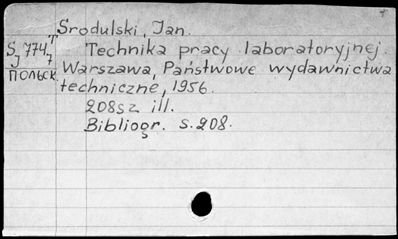 Srodulski, Jan.
S 774 T Technika pracy laboratoryjnej.
J 7 Warszawa, Państwowe wydawnictwa
ПОЛЬСК techniczne, 1956.
208sz ill.
Bibliogr. s. 208.